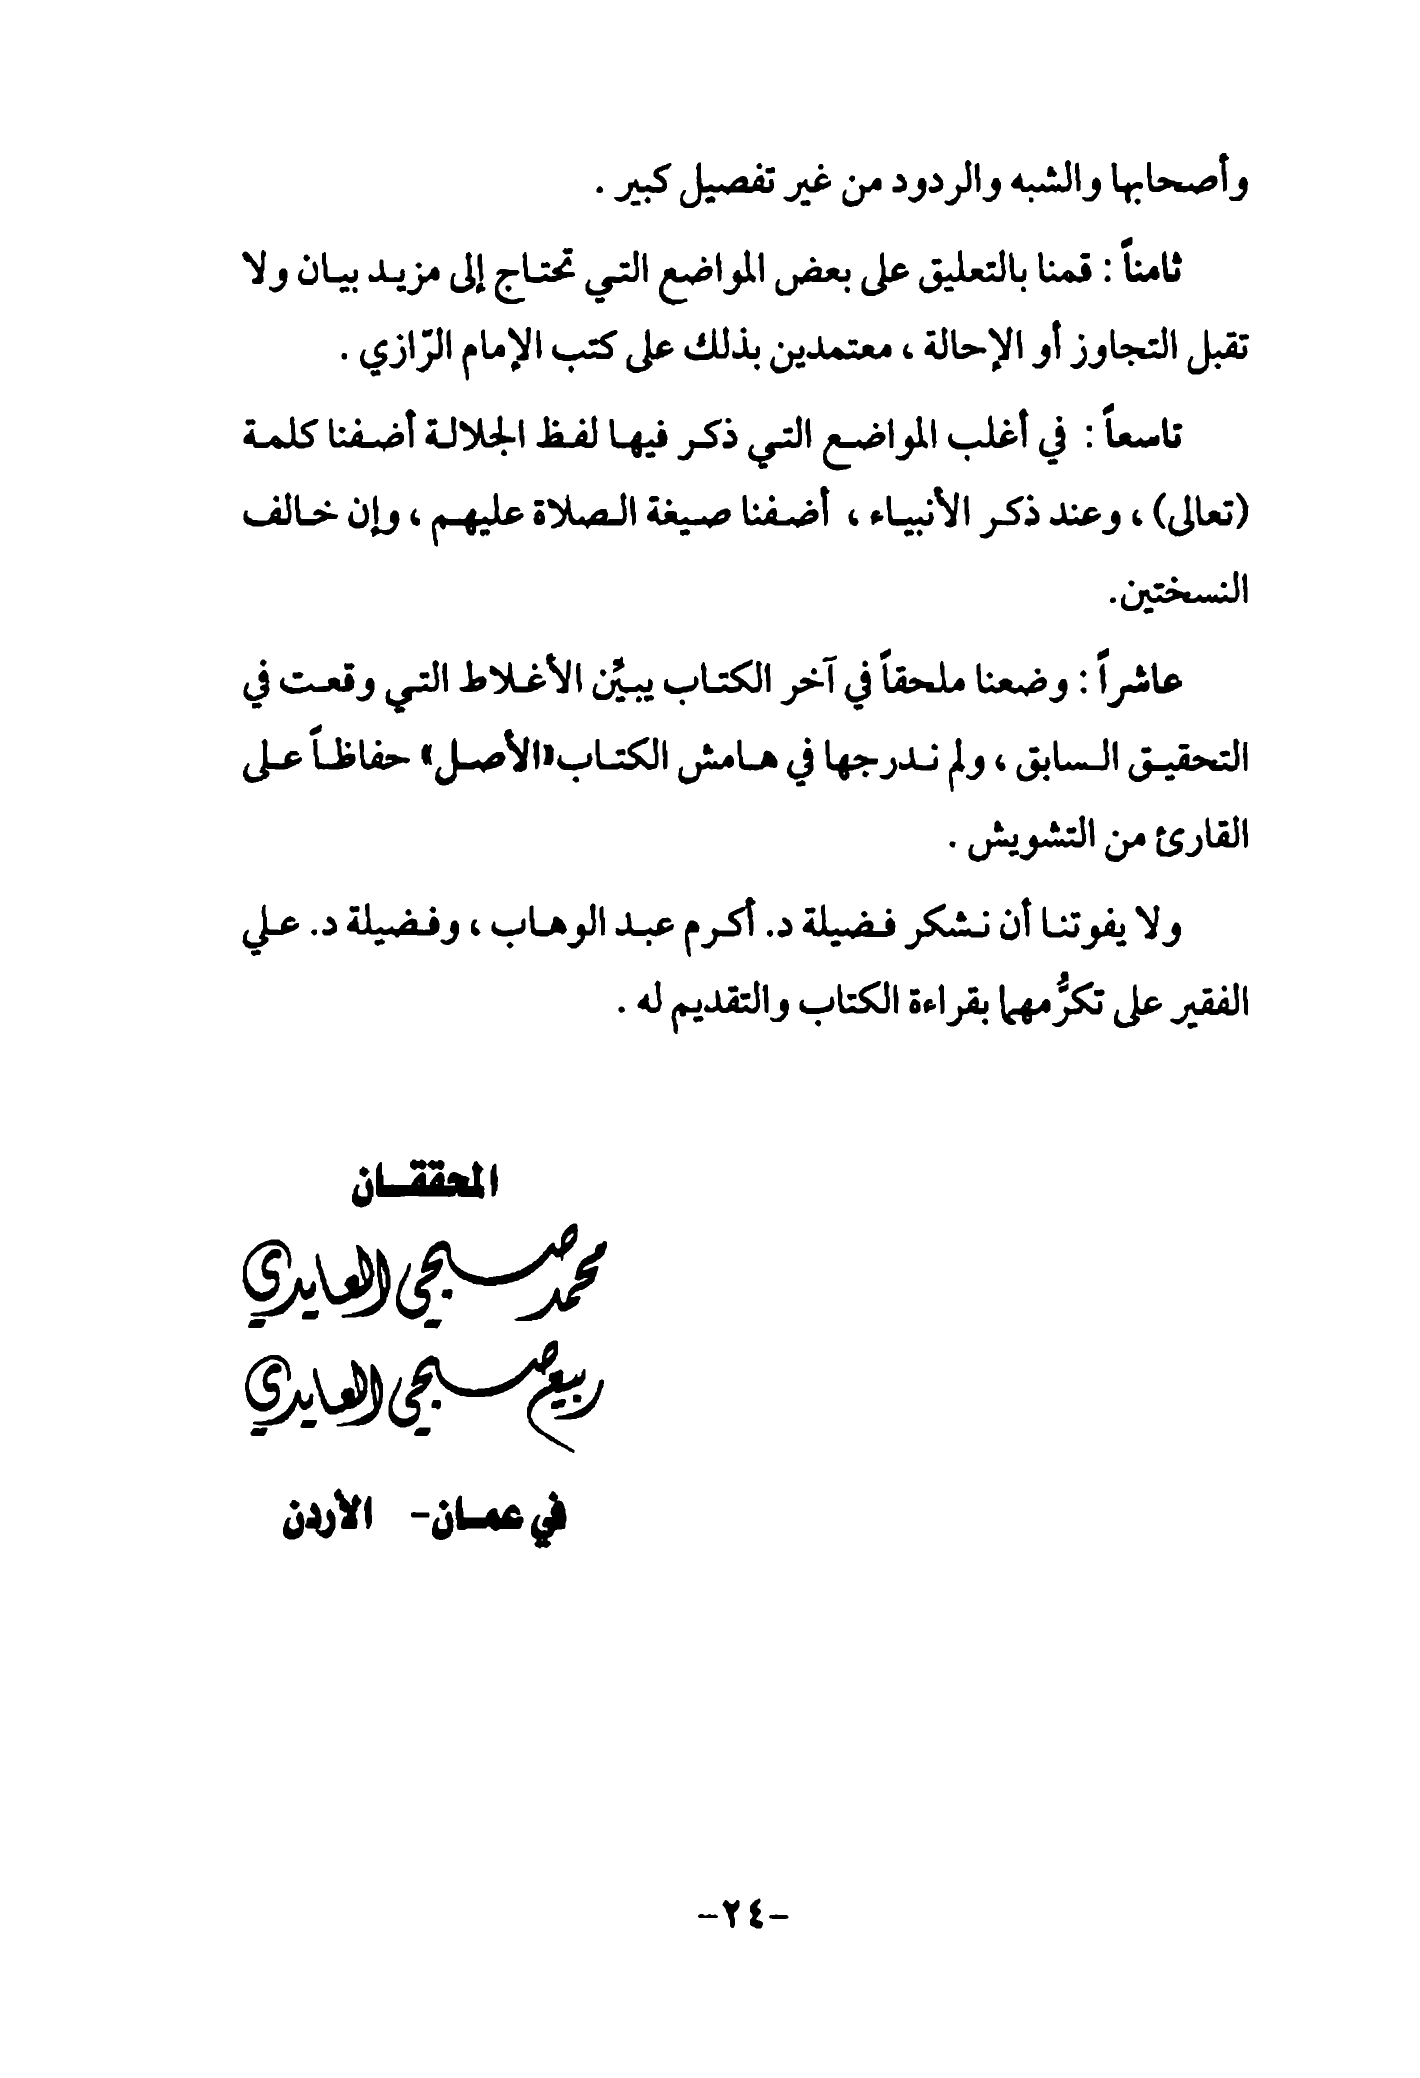 وأصحابها والشبه والردود من غير تفصيل كبير .
ثامناً : قمنا بالتعليق على بعض المواضع التي تحتاج إلى مزيد بيان ولا
تقبل التجاوز أو الإحالة ، معتمدين بذلك على كتب الإمام الرّازي .
تاسعاً : في أغلب المواضع التي ذكر فيها لفظ الجلالة أضفنا كلمة
(تعالى) ، وعند ذكر الأنبياء ، أضفنا صيغة الصلاة عليهم ، وإن خالف
النسختين.
عاشراً : وضعنا ملحقاً في آخر الكتاب يبيِّن الأغلاط التي وقعت في
التحقيق السابق ، ولم ندرجها في هامش الكتاب «الأصل» حفاظاً على
القارئ من التشويش .
ولا يفوتنا أن نشكر فضيلة د. أكرم عبد الوهاب ، وفضيلة د. علي
الفقير على تكرُّمهما بقراءة الكتاب والتقديم له .
المحققان
محمد صبحي العايدي
ربيع صبحي العايدي
في عمان- الأردن
-٢٤-